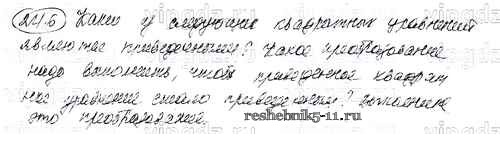 Какие из следующих квадратных уравнений
являются приведенными? Какое преобразование
надо выполнить, чтобы приведенное квадрат
ное уравнение стало приведенным? выполните
это преобразование.
reshebnik5-11.ru